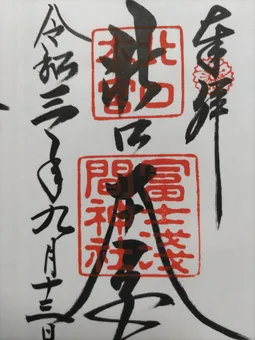 奉拝
北口本宮
北口
本宮
冨士淺
間神社
令和三年九月十三日